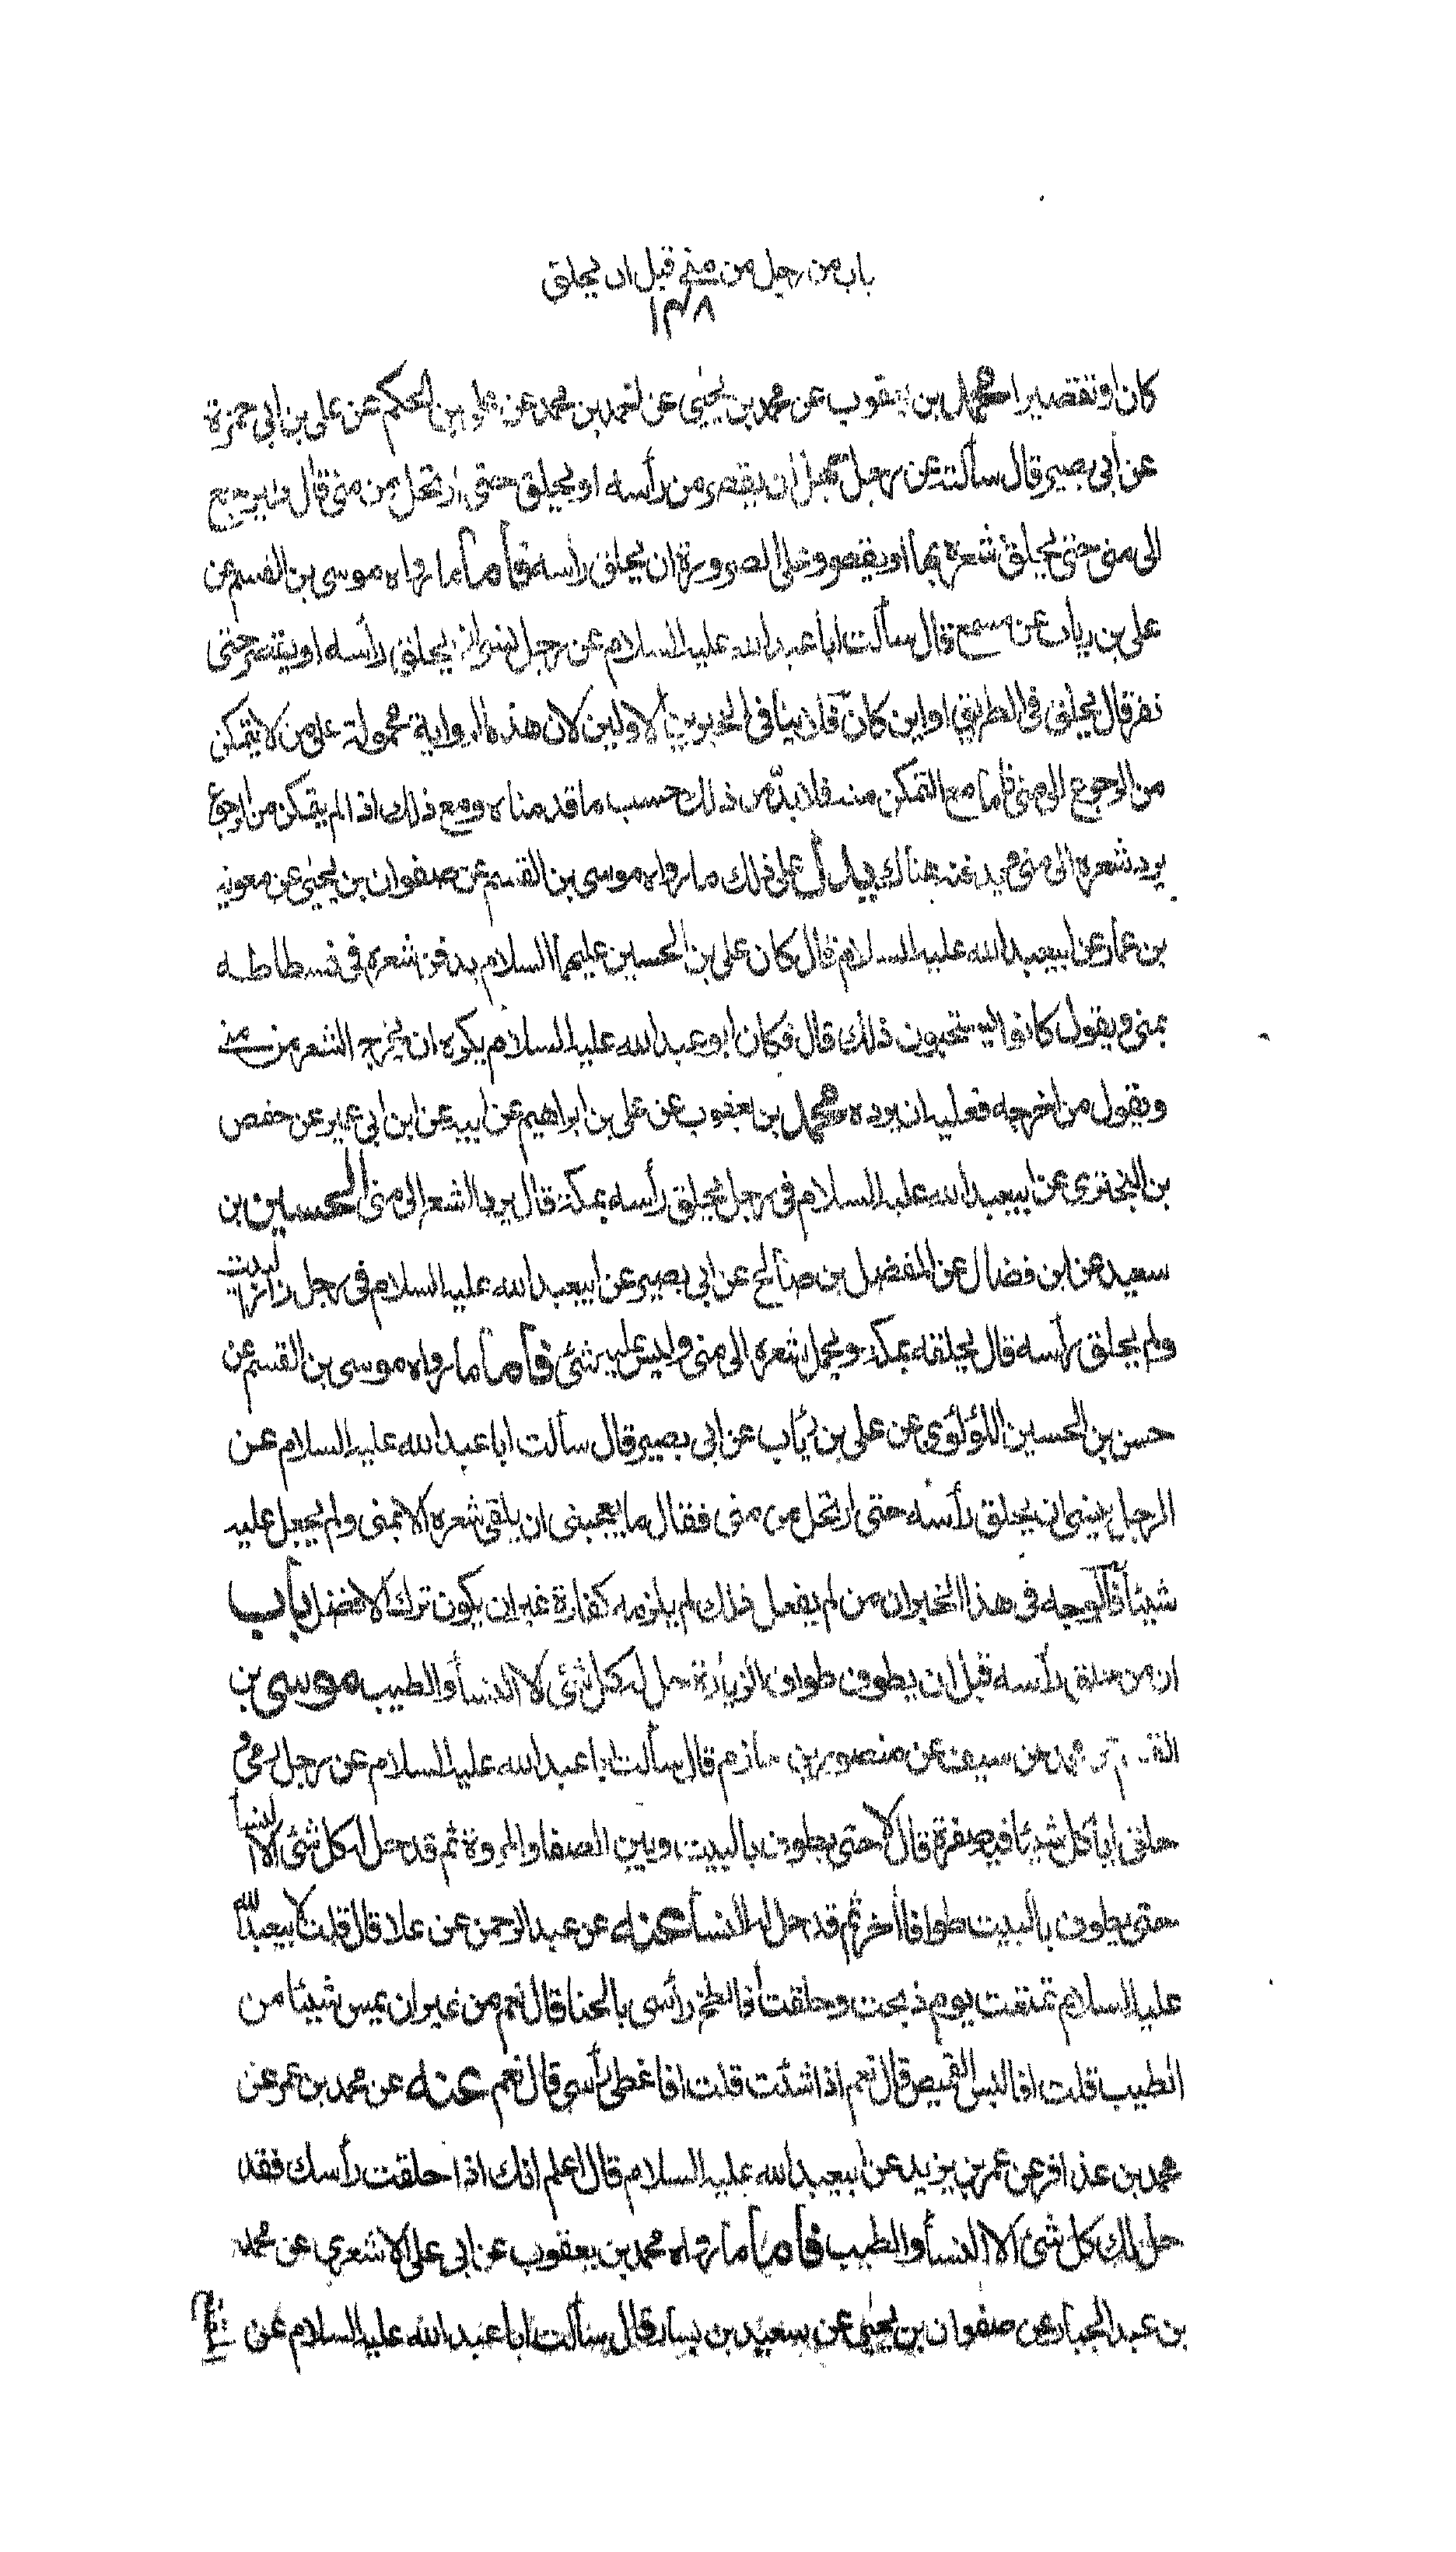 باب من رحل من منى قبل ان يحلق
١٣٨
كان او تقصيرا محمد بن يعقوب عن محمد بن يحيى عن احمد بن محمد عن علي بن الحكم عن علي بن ابي حمزة
عن أبي بصير قال سألته عن رجل جهل ان يقصر من رأسه او يحلق حتى ارتحل من منى قال فليرجع
الى منى حتى يحلق شعره بها او يقصر وعلى الصرورة ان يحلق رأسه فأما ما رواه موسى بن القسم عن
علي بن رياب عن مسمع قال سألت ابا عبد الله عليه السلام عن رجل نسي ان يحلق رأسه او يقصر حتى
نفر قال يحلق في الطريق او اين كان فلا ينافي الخبرين الاولين لان هذه الرواية محمولة على من لا يتمكن
من الرجوع الى منى فأما مع التمكن منه فلا بدّ من ذلك حسب ما قدمناه ومع ذلك اذا لم يتمكن من الرجوع
يرد شعره الى منى فيدفنه هناك يدل على ذلك ما رواه موسى بن القسم عن صفوان بن يحيى عن معوية
بن عمار عن ابيعبد الله عليه السلام قال كان علي بن الحسين عليهما السلام يدفن شعره في فسطاطه
بمنى ويقول كانوا يستحبون ذلك قال فكان ابو عبد الله عليه السلام يكره ان يخرج الشعر من منى
ويقول من اخرجه فعليه ان يرده محمد بن يعقوب عن علي بن ابراهيم عن ابيه عن ابن ابي عمير عن حفص
بن البختري عن ابيعبد الله عليه السلام في رجل يحلق رأسه بمكة قال يرد الشعر الى منى الحسين بن
سعيد عن ابن فضال عن المفضل بن صالح عن ابي بصير عن ابيعبد الله عليه السلام في رجل زار البيت
ولم يحلق رأسه قال يحلقه بمكة ويحمل شعره الى منى وليس عليه شئ فأما ما رواه موسى بن القسم عن
حسن بن الحسين اللؤلؤي عن علي بن رئاب عن ابي بصير قال سألت ابا عبد الله عليه السلام عن
الرجل ينسى ان يحلق رأسه حتى ارتحل من منى فقال ما يعجبني ان يلقى شعره الا بمنى ولم يجعل عليه
شيئا فالوجه في هذا الخبر ان من لم يفعل ذلك لم يلزمه كفارة غير ان يكون ترك الافضل باب
ان من حلق رأسه قبل ان يطوف طواف الزيارة حل له كل شئ الا النسأ والطيب موسى بن
القسم عن محمد بن سيف عن منصور بن حازم قال سألت ابا عبد الله عليه السلام عن رجل رمى و
حلق ايأكل شيئا فيه صفرة قال لا حتى يطوف بالبيت وبين الصفا والمروة ثم قد حل له كل شئ الا النسأ
حتى يطوف بالبيت طوافا آخر ثم قد حل له النسأ عنه عن عبد الرحمن عن علا قال قلت لابيعبد الله
عليه السلام تمتعت يوم ذبحت وحلقت أفالطخ رأسي بالحنا قال نعم من غير ان يمس شيئا من
الطيب قلت افالبس القميص قال نعم اذا شئت قلت افاغطي رأسي قال نعم عنه عن محمد بن عمر عن
محمد بن عذافر عن عمر بن يزيد عن ابيعبد الله عليه السلام قال اعلم انك اذا حلقت رأسك فقد
حل لك كل شئ الا النسأ والطيب فأما ما رواه محمد بن يعقوب عن ابي علي الاشعري عن محمد
بن عبد الجبار عن صفوان بن يحيى عن سعيد بن يسار قال سألت ابا عبد الله عليه السلام عن